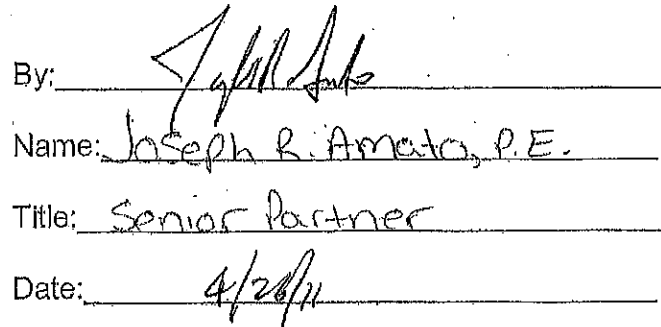 By:
Name: Joseph R. Amato, P.E.
Title: Senior Partner
Date: 4/26/11